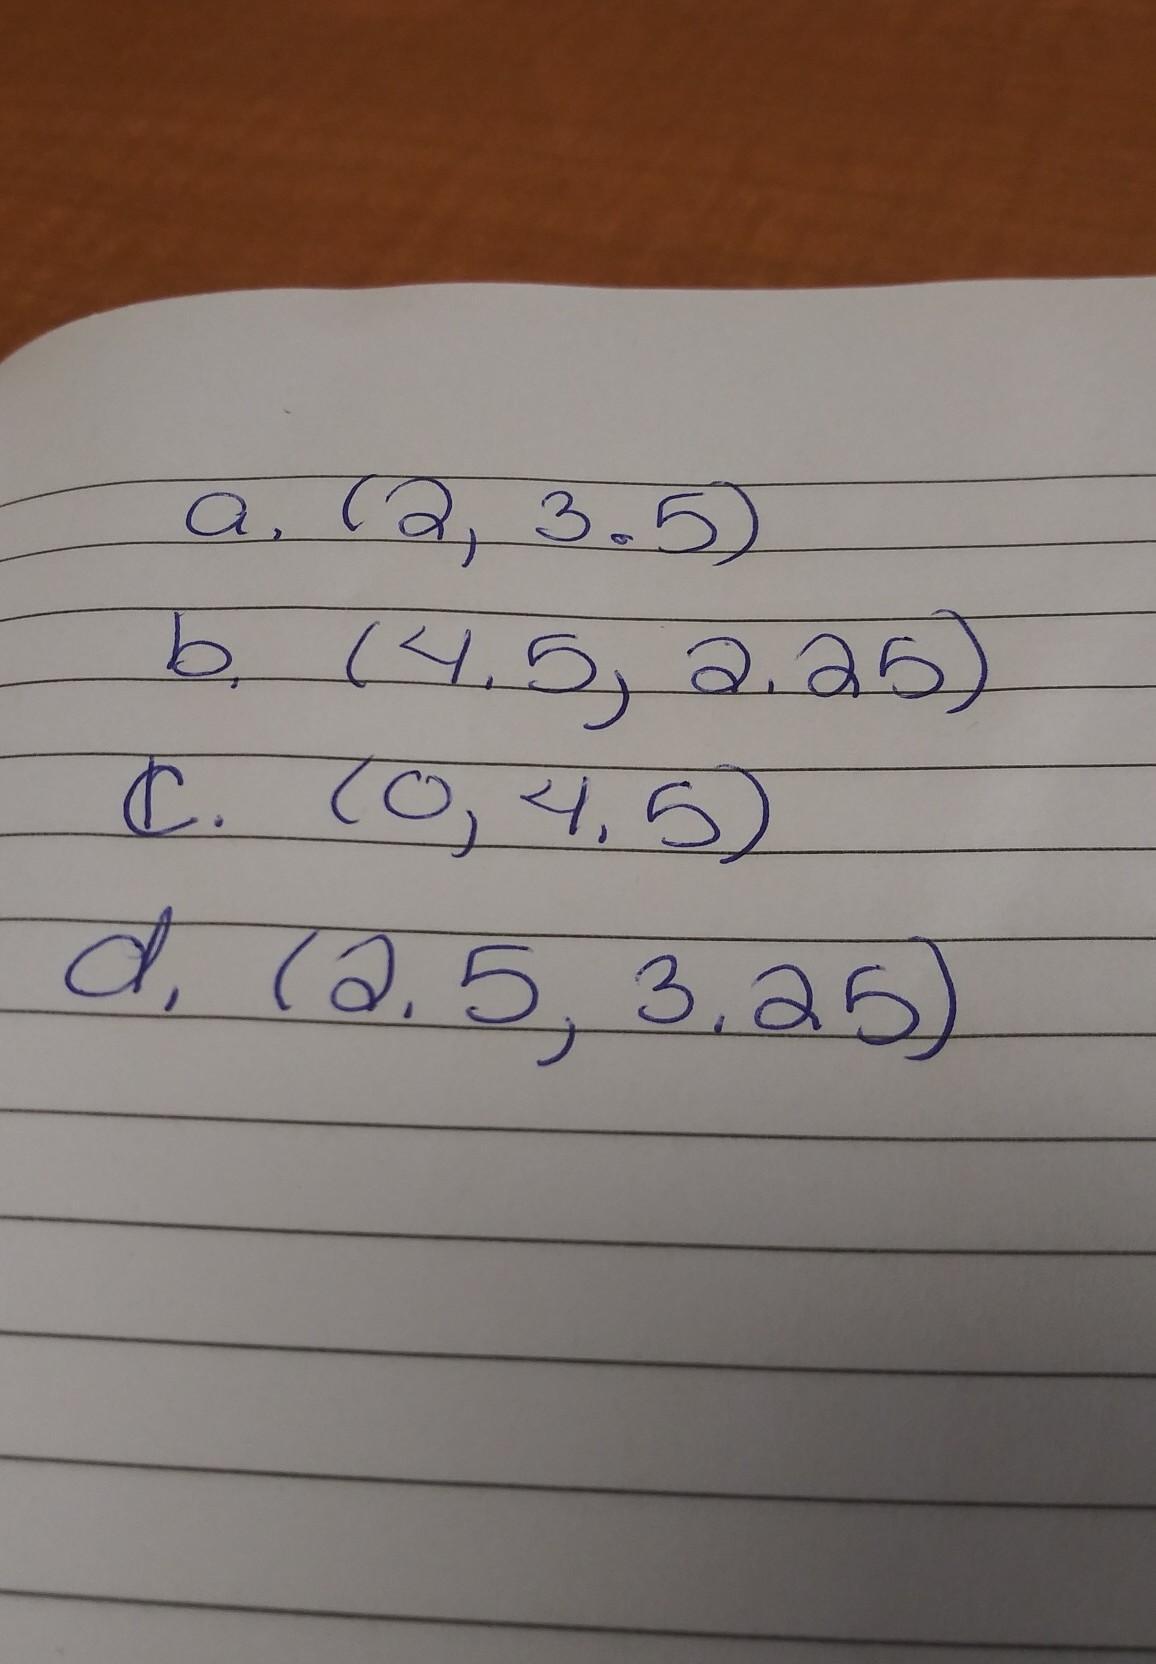 a. (2, 3.5)
b. (4.5, 2.25)
c. (0, 4.5)
d. (2.5, 3.25)